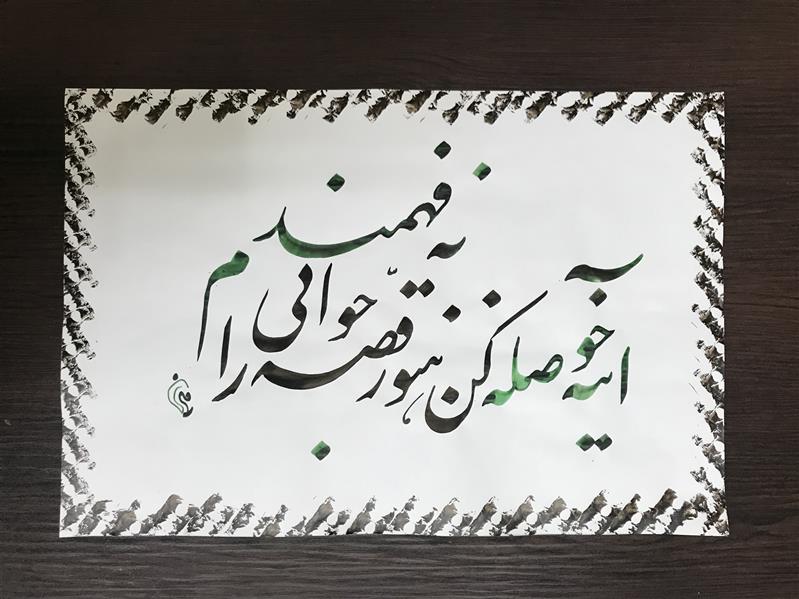 آینه حوصله کن هنوز قصه جوانی را نفهمیدم